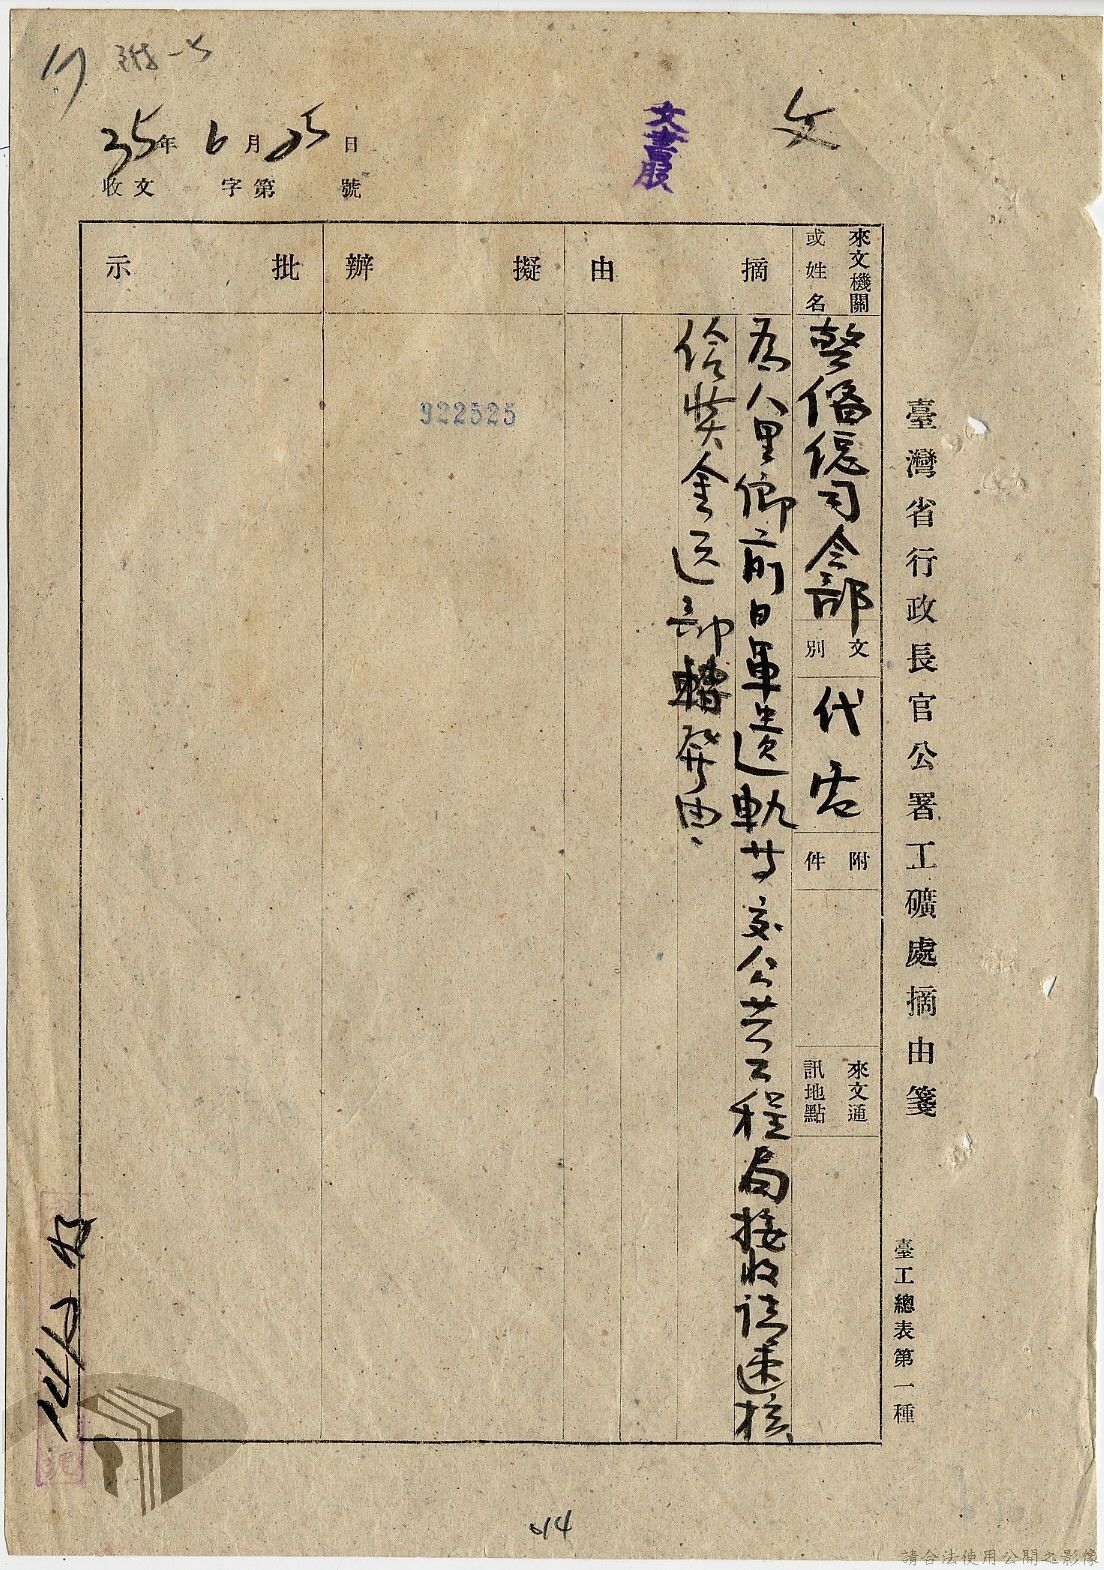 臺灣省行政長官公署工礦處摘由箋
臺工總表第一種
文
文書股
35年6月25日
收文 字第 號
來文機關
或姓名
警備總司令部
文別
代电
附件
來文通
訊地點
摘由
為八里鄉前日軍遺軌廿交公共工程局接收請速核
給獎金送部轉發由
擬辦
922525
批示
14
請合法使用公開之影像